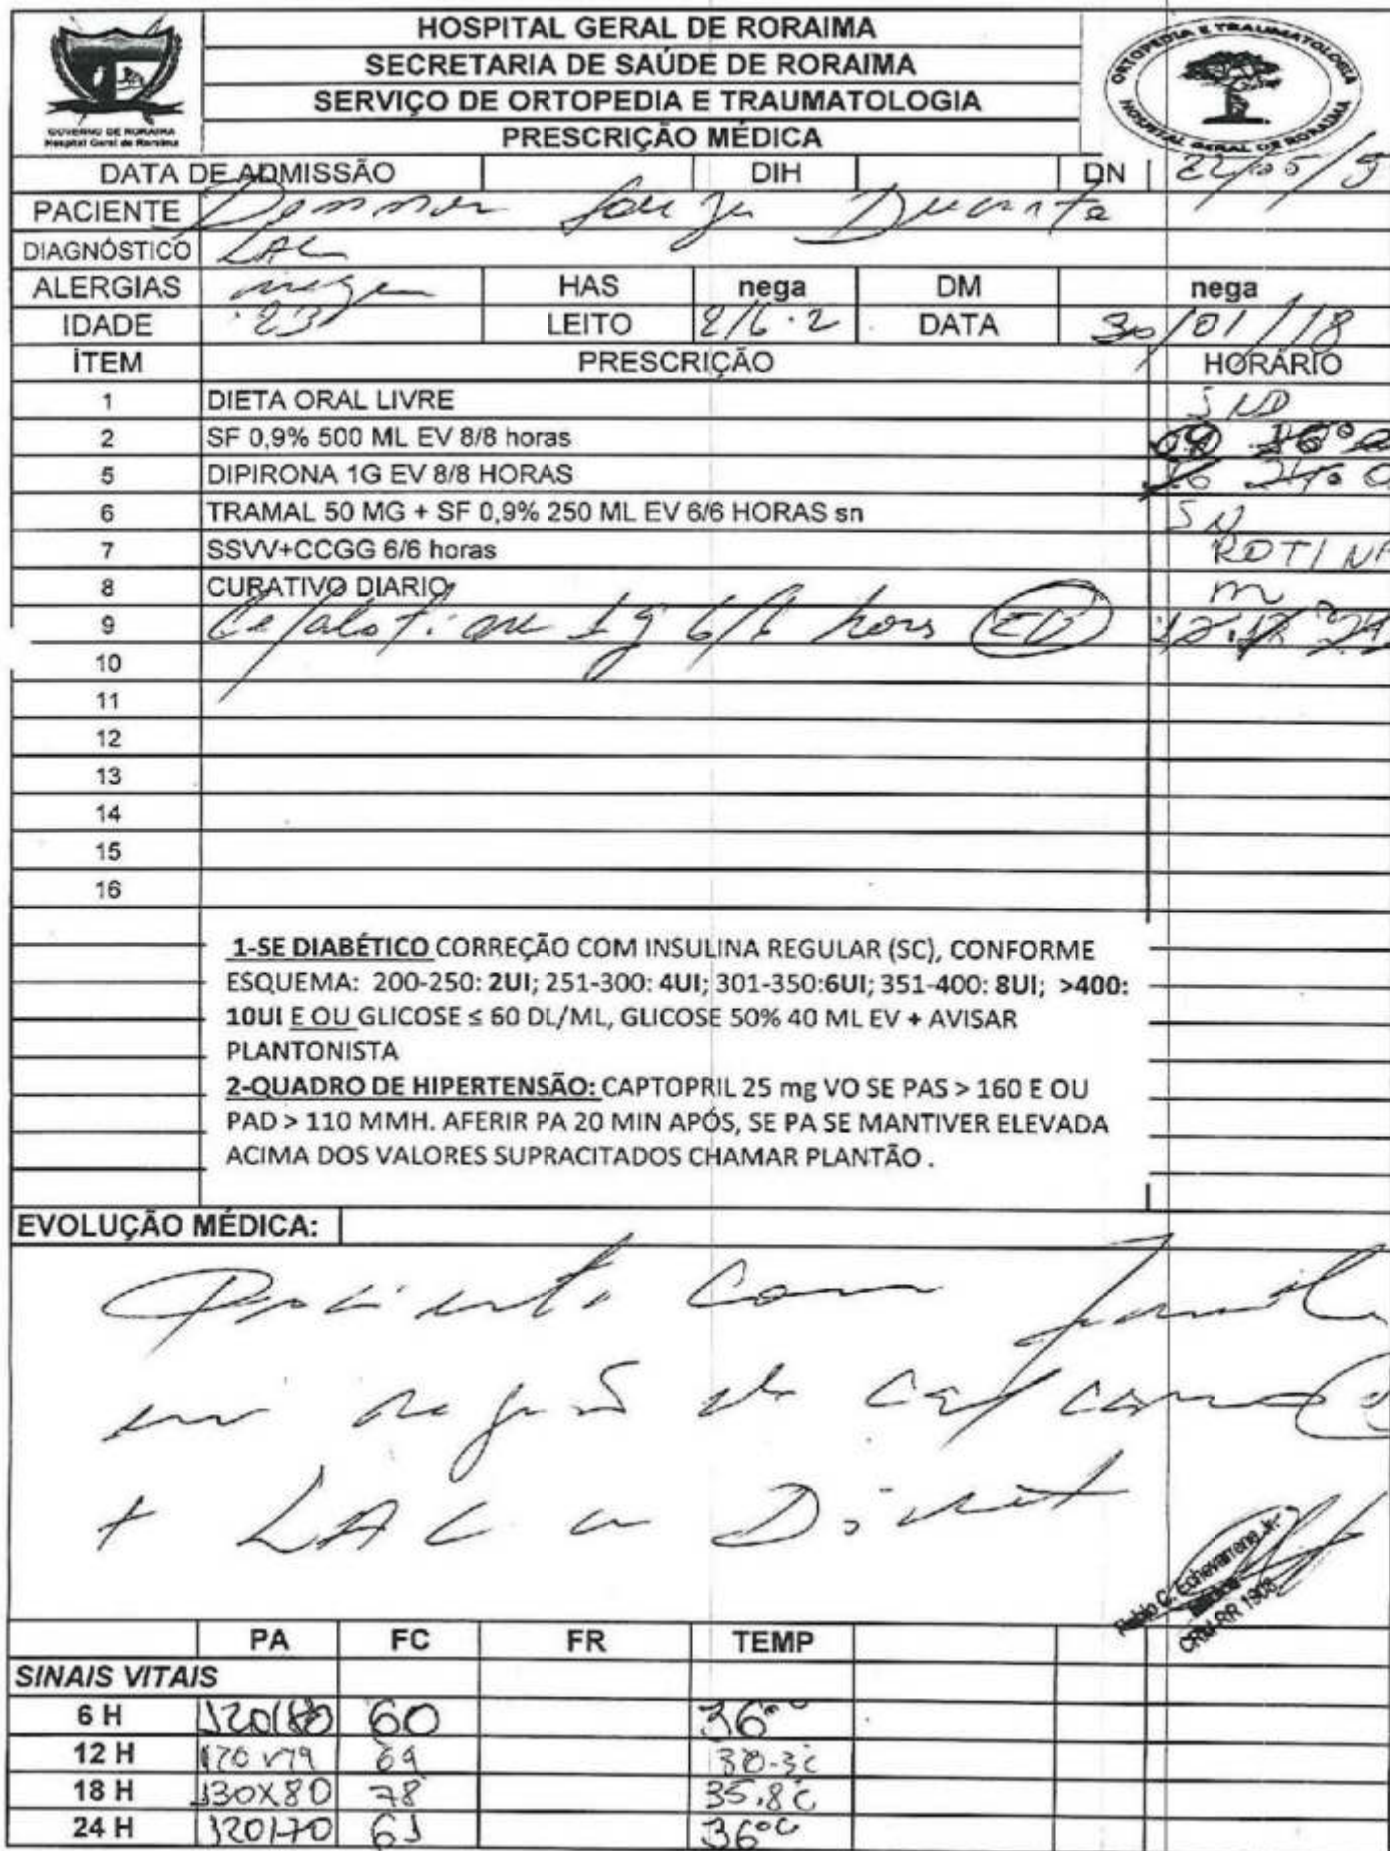 HOSPITAL GERAL DE RORAIMA
SECRETARIA DE SAÚDE DE RORAIMA
SERVIÇO DE ORTOPEDIA E TRAUMATOLOGIA
PRESCRIÇÃO MÉDICA
GOVERNO DE RORAIMA
Hospital Geral de Roraima
ORTOPEDIA E TRAUMATOLOGIA
HOSPITAL GERAL DE RORAIMA
DATA DE ADMISSÃO DIH DN 22/05/9
PACIENTE Souza Duarte
DIAGNÓSTICO LAC
ALERGIAS nega HAS nega DM nega
IDADE 23 LEITO DATA 30/01/18
ÍTEM PRESCRIÇÃO HORÁRIO
1 DIETA ORAL LIVRE SND
2 SF 0,9% 500 ML EV 8/8 horas
5 DIPIRONA 1G EV 8/8 HORAS 16 24
6 TRAMAL 50 MG + SF 0,9% 250 ML EV 6/6 HORAS sn SN
7 SSVV+CCGG 6/6 horas ROTINA
8 CURATIVO DIARIO m
9 Cefalotina 1g 6/6 hors EV 12 18 24
10
11
12
13
14
15
16
1-SE DIABÉTICO CORREÇÃO COM INSULINA REGULAR (SC), CONFORME
ESQUEMA: 200-250: 2UI; 251-300: 4UI; 301-350:6UI; 351-400: 8UI; >400:
10UI E OU GLICOSE ≤ 60 DL/ML, GLICOSE 50% 40 ML EV + AVISAR
PLANTONISTA
2-QUADRO DE HIPERTENSÃO: CAPTOPRIL 25 mg VO SE PAS > 160 E OU
PAD > 110 MMH. AFERIR PA 20 MIN APÓS, SE PA SE MANTIVER ELEVADA
ACIMA DOS VALORES SUPRACITADOS CHAMAR PLANTÃO .
EVOLUÇÃO MÉDICA:
Paciente com
em região de
+ LAC a Direit
Pablo C. Echevarrena Jr.
Médico
CRM-RR 1908
PA FC FR TEMP
SINAIS VITAIS
6 H 120/80 60 36
12 H 69
18 H 130X80 78 35,8c
24 H 120/70 61 36°C